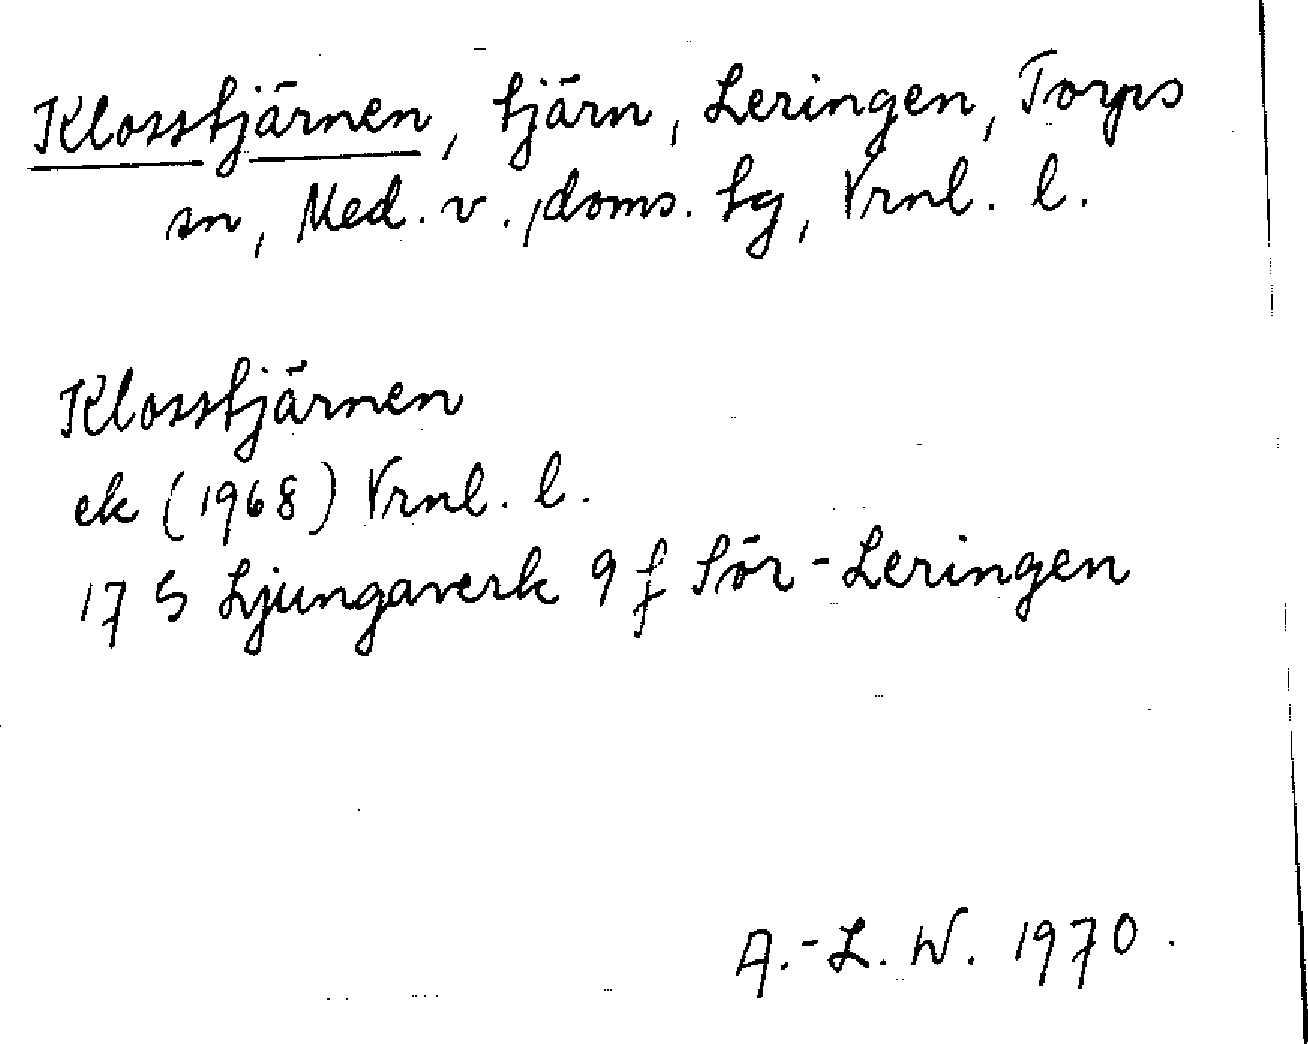 Klosstjärnen, tjärn, Leringen, Torps
sn, Med. v., doms. tg, Vrnl. l.
Klosstjärnen
ek (1968) Vrnl. l.
17 G Ljungaverk 9 f Sör-Leringen
A.-L. W. 1970.